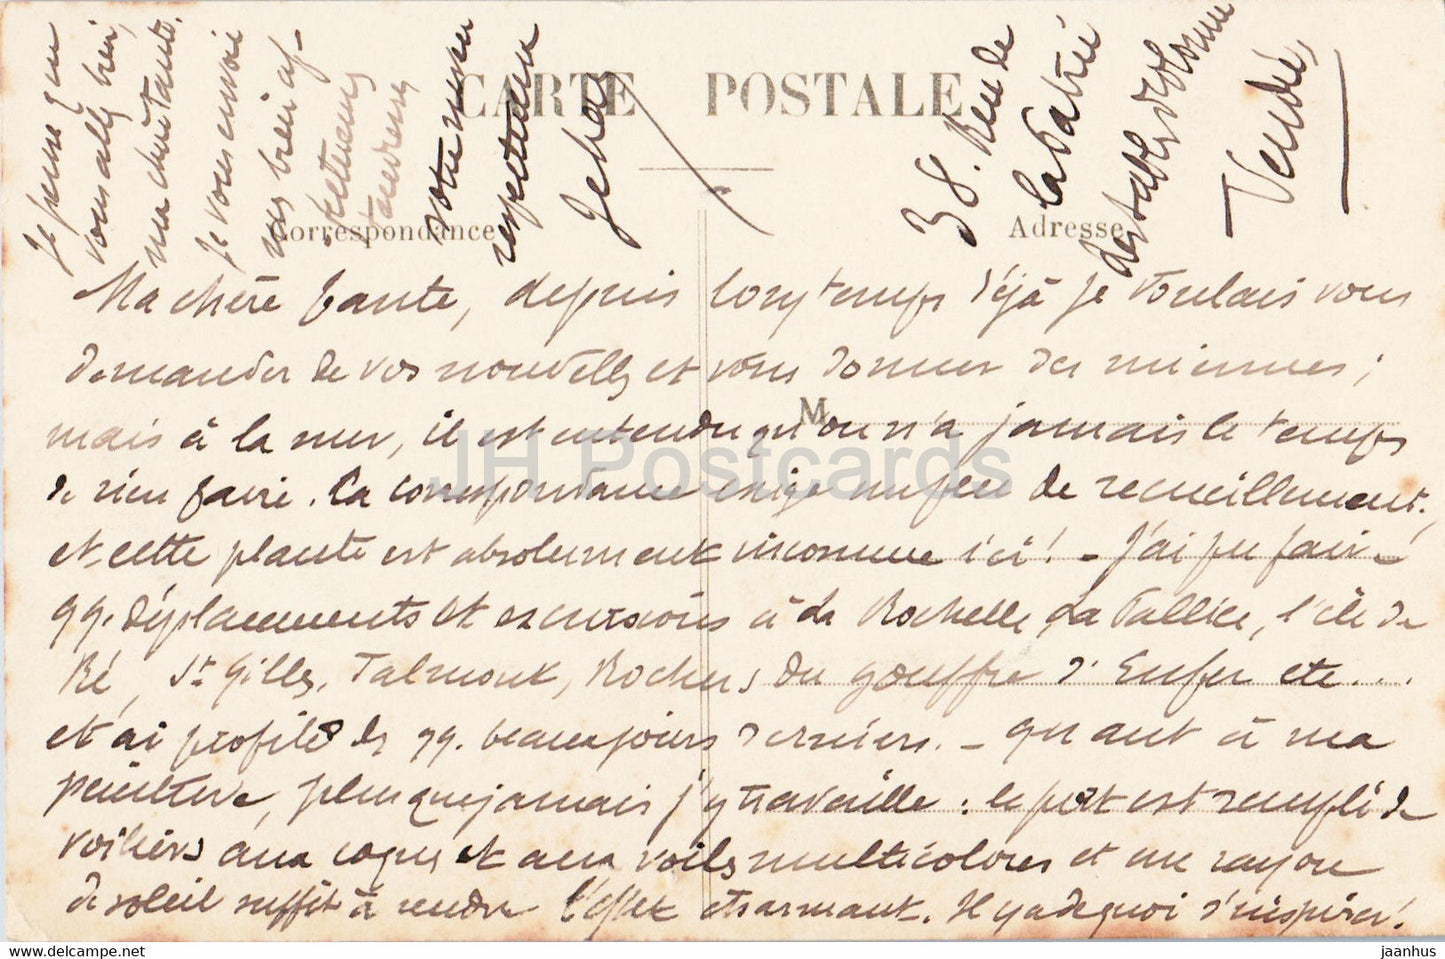 CARTE POSTALE
Correspondance
Adresse
M
38. Rue de
la Patrie
des Sables d'Olonne
Vendée,
Ma chère tante, depuis longtemps déjà je voulais vous
demander de vos nouvelles et vous donner des miennes ;
mais à la mer, il est entendu qu'on n'a jamais le temps
de rien faire. La correspondance exige un peu de recueillement,
et cette plante est absolument inconnue ici ! - J'ai pu faire
qq. déplacements et excursions à La Rochelle, La Pallice, l'île de
Ré, St Gilles, Talmont, Rochers du gouffre d'Enfer etc...
et ai profité des qq. beaux jours derniers. - quant à ma
peinture, plus que jamais j'y travaille : le port est rempli de
voiliers aux coques et aux voiles multicolores et un rayon
de soleil suffit à rendre l'effet charmant. Il y a de quoi s'inspirer !
Je pense que
vous allez bien,
ma chère tante.
Je vous envoie
mes bien af-
fectueuses
tendresses
votre neveu
respectueux
Jehan
JH Postcards
https://www.hippostcard.com
jaanhus